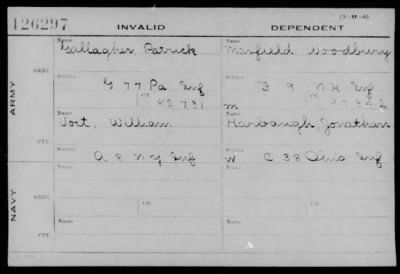 (3-H-6)
126297 INVALID DEPENDENT
Name Name
Gallagher, Patrick Masfield Woodbury
ORIG. Service Service
G 77 Pa Inf F 9 N H Inf
Ctf. Ctf.
82731 m 97842
ARMY
Name Name
Vort, William Harbaugh, Jonathan
CTF. Service Service
A 8 N Y Inf W C 38 Ohio Inf
Name Name
NAVY
ORIG. Ctf. Ctf.
Name Name
CTF.